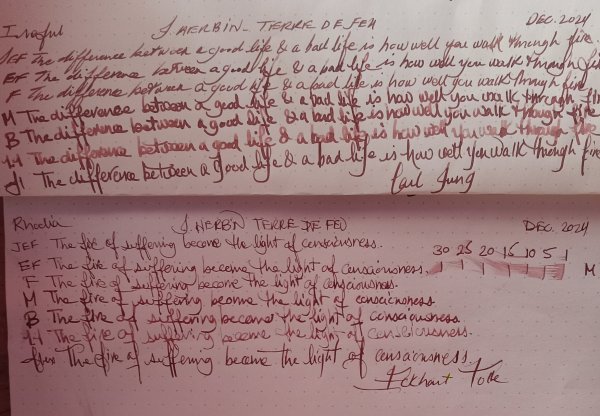 J. HERBIN - TERRE DE FEU DEC. 2024
JEF The difference between a good life & a bad life is how well you walk through fire
EF The difference between a good life & a bad life is how well you walk through fire
F The difference between a good life & a bad life is how well you walk through fire
M The difference between a good life & a bad life is how well you walk through fire
B The difference between a good life & a bad life is how well you walk through fire
The difference between a good life & a bad life is how well you walk through fire
The difference between a good life & a bad life is how well you walk through fire
Carl Jung
Rhodia J. HERBIN TERRE DE FEU DEC. 2024
JEF The fire of suffering become the light of consciousness.
30 25 20 15 10 5 1
EF The fire of suffering become the light of consciousness. M
F The fire of suffering become the light of consciousness.
M The fire of suffering become the light of consciousness
B The fire of suffering become the light of consciousness.
The fire of suffering become the light of consciousness.
flex The fire of suffering become the light of consciousness.
Eckhart Tolle